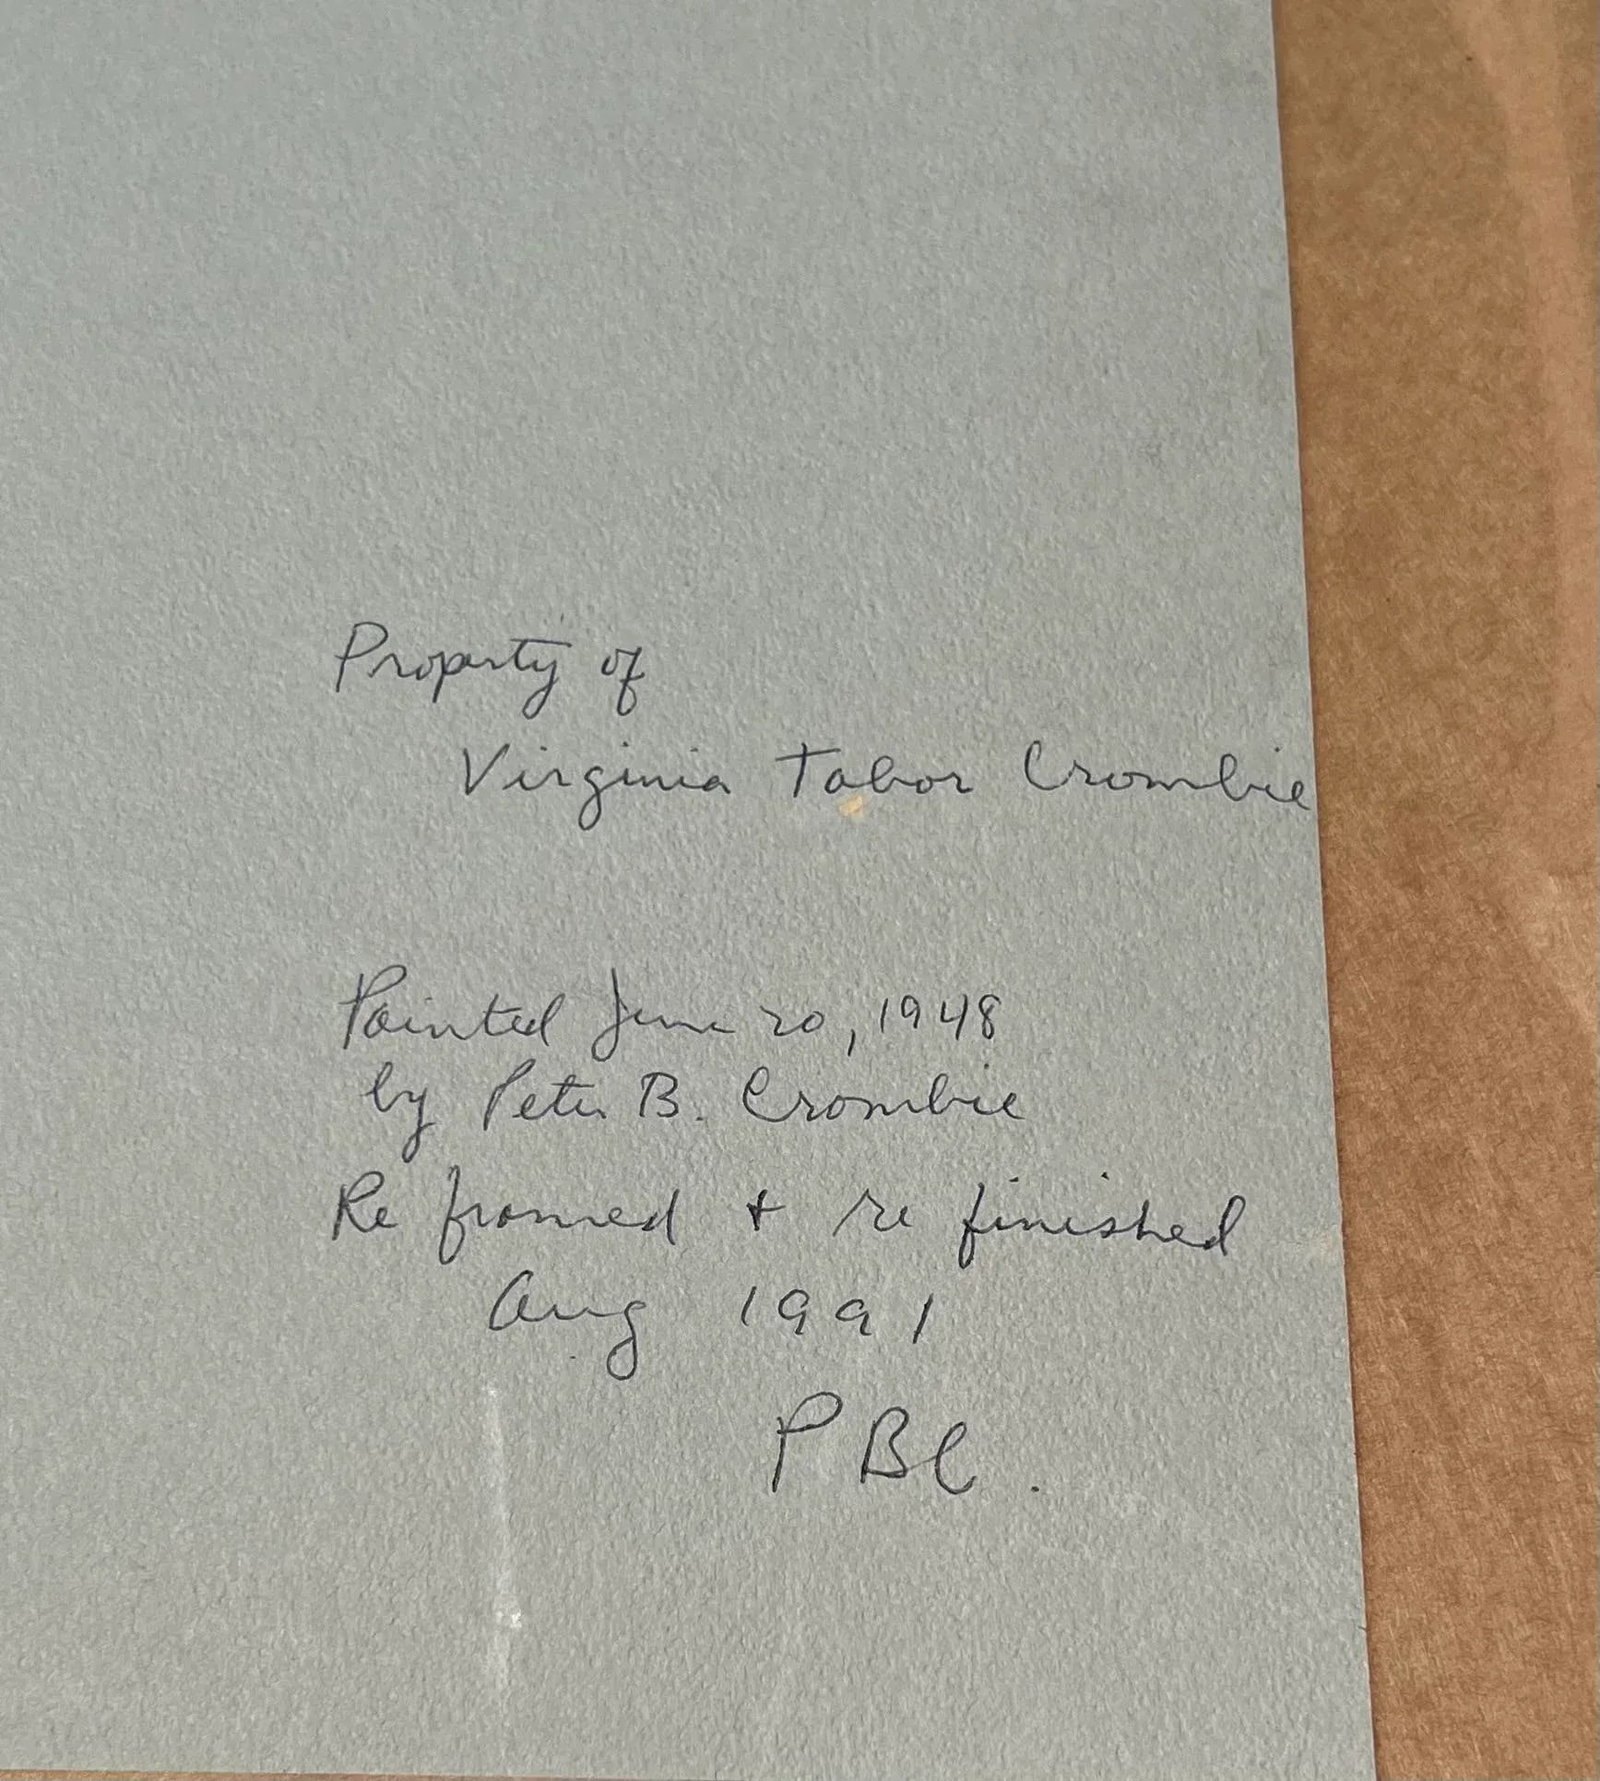 Property of
Virginia Tabor Crombie
Painted June 20, 1948
by Peter B. Crombie
Re framed + re finished
Aug 1991
PBC.